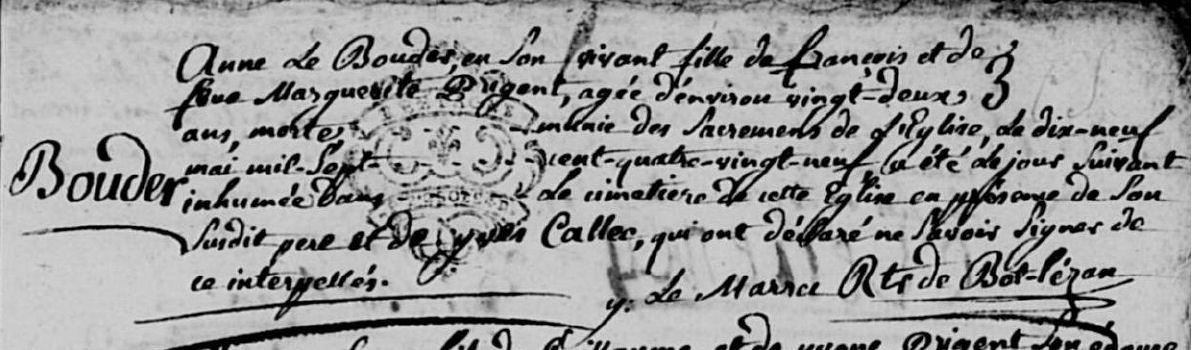 Anne Le Bouder, en son vivant fille de françois et de
feue Marguerite Brigent, agée d'environ vingt-deux
ans, morte, munie des Sacremens de l'Eglise, le dix-neuf
Bouder
mai mil-sept-cent-quatre-vingt-neuf, a été le jour suivant
inhumée dans le cimetiere de cette Eglise en présence de son
susdit pere et de yves Callec, qui ont déclaré ne savoir signer de
ce interpellés.
y. Le Marrec Rtr de Bot-lézan
et de yvone Brigent son épouse